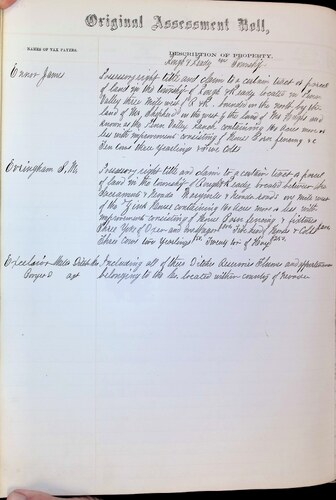 Original Assessment Roll,
NAMES OF TAX PAYERS.
DESCRIPTION OF PROPERTY.
Rough & Ready Township
James
Possessory right title and claim to a certain tract or parcel
of land in the township of Rough & Ready located in Penn
Valley three miles west of R & R. bounded on the north by the
land of Mr Shepherd on the west by the land of
known as the Penn Valley Ranch containing 160 acres more or
less with improvement consisting of House Barn fencing &c
Ten Cows three Yearlings two Colts
Everingham S. M.
Possessory right title and claim to a certain tract or parcel
of land in the township of Rough & Ready bounded
Sacramento & Nevada Marysville & Nevada roads one mile west
of the Grant House containing 160 acres more or less with
improvement consisting of House Barn fencing & fixtures
Three Yoke of Oxen and one Wagon Five head Horses & Colts
Three Cows two Yearlings Twenty two Hogs
Excelsior Ditch Co. Including all of their Ditches Reservoirs Flumes and appurtenances
agt belonging to the Co. located within County of Nevada